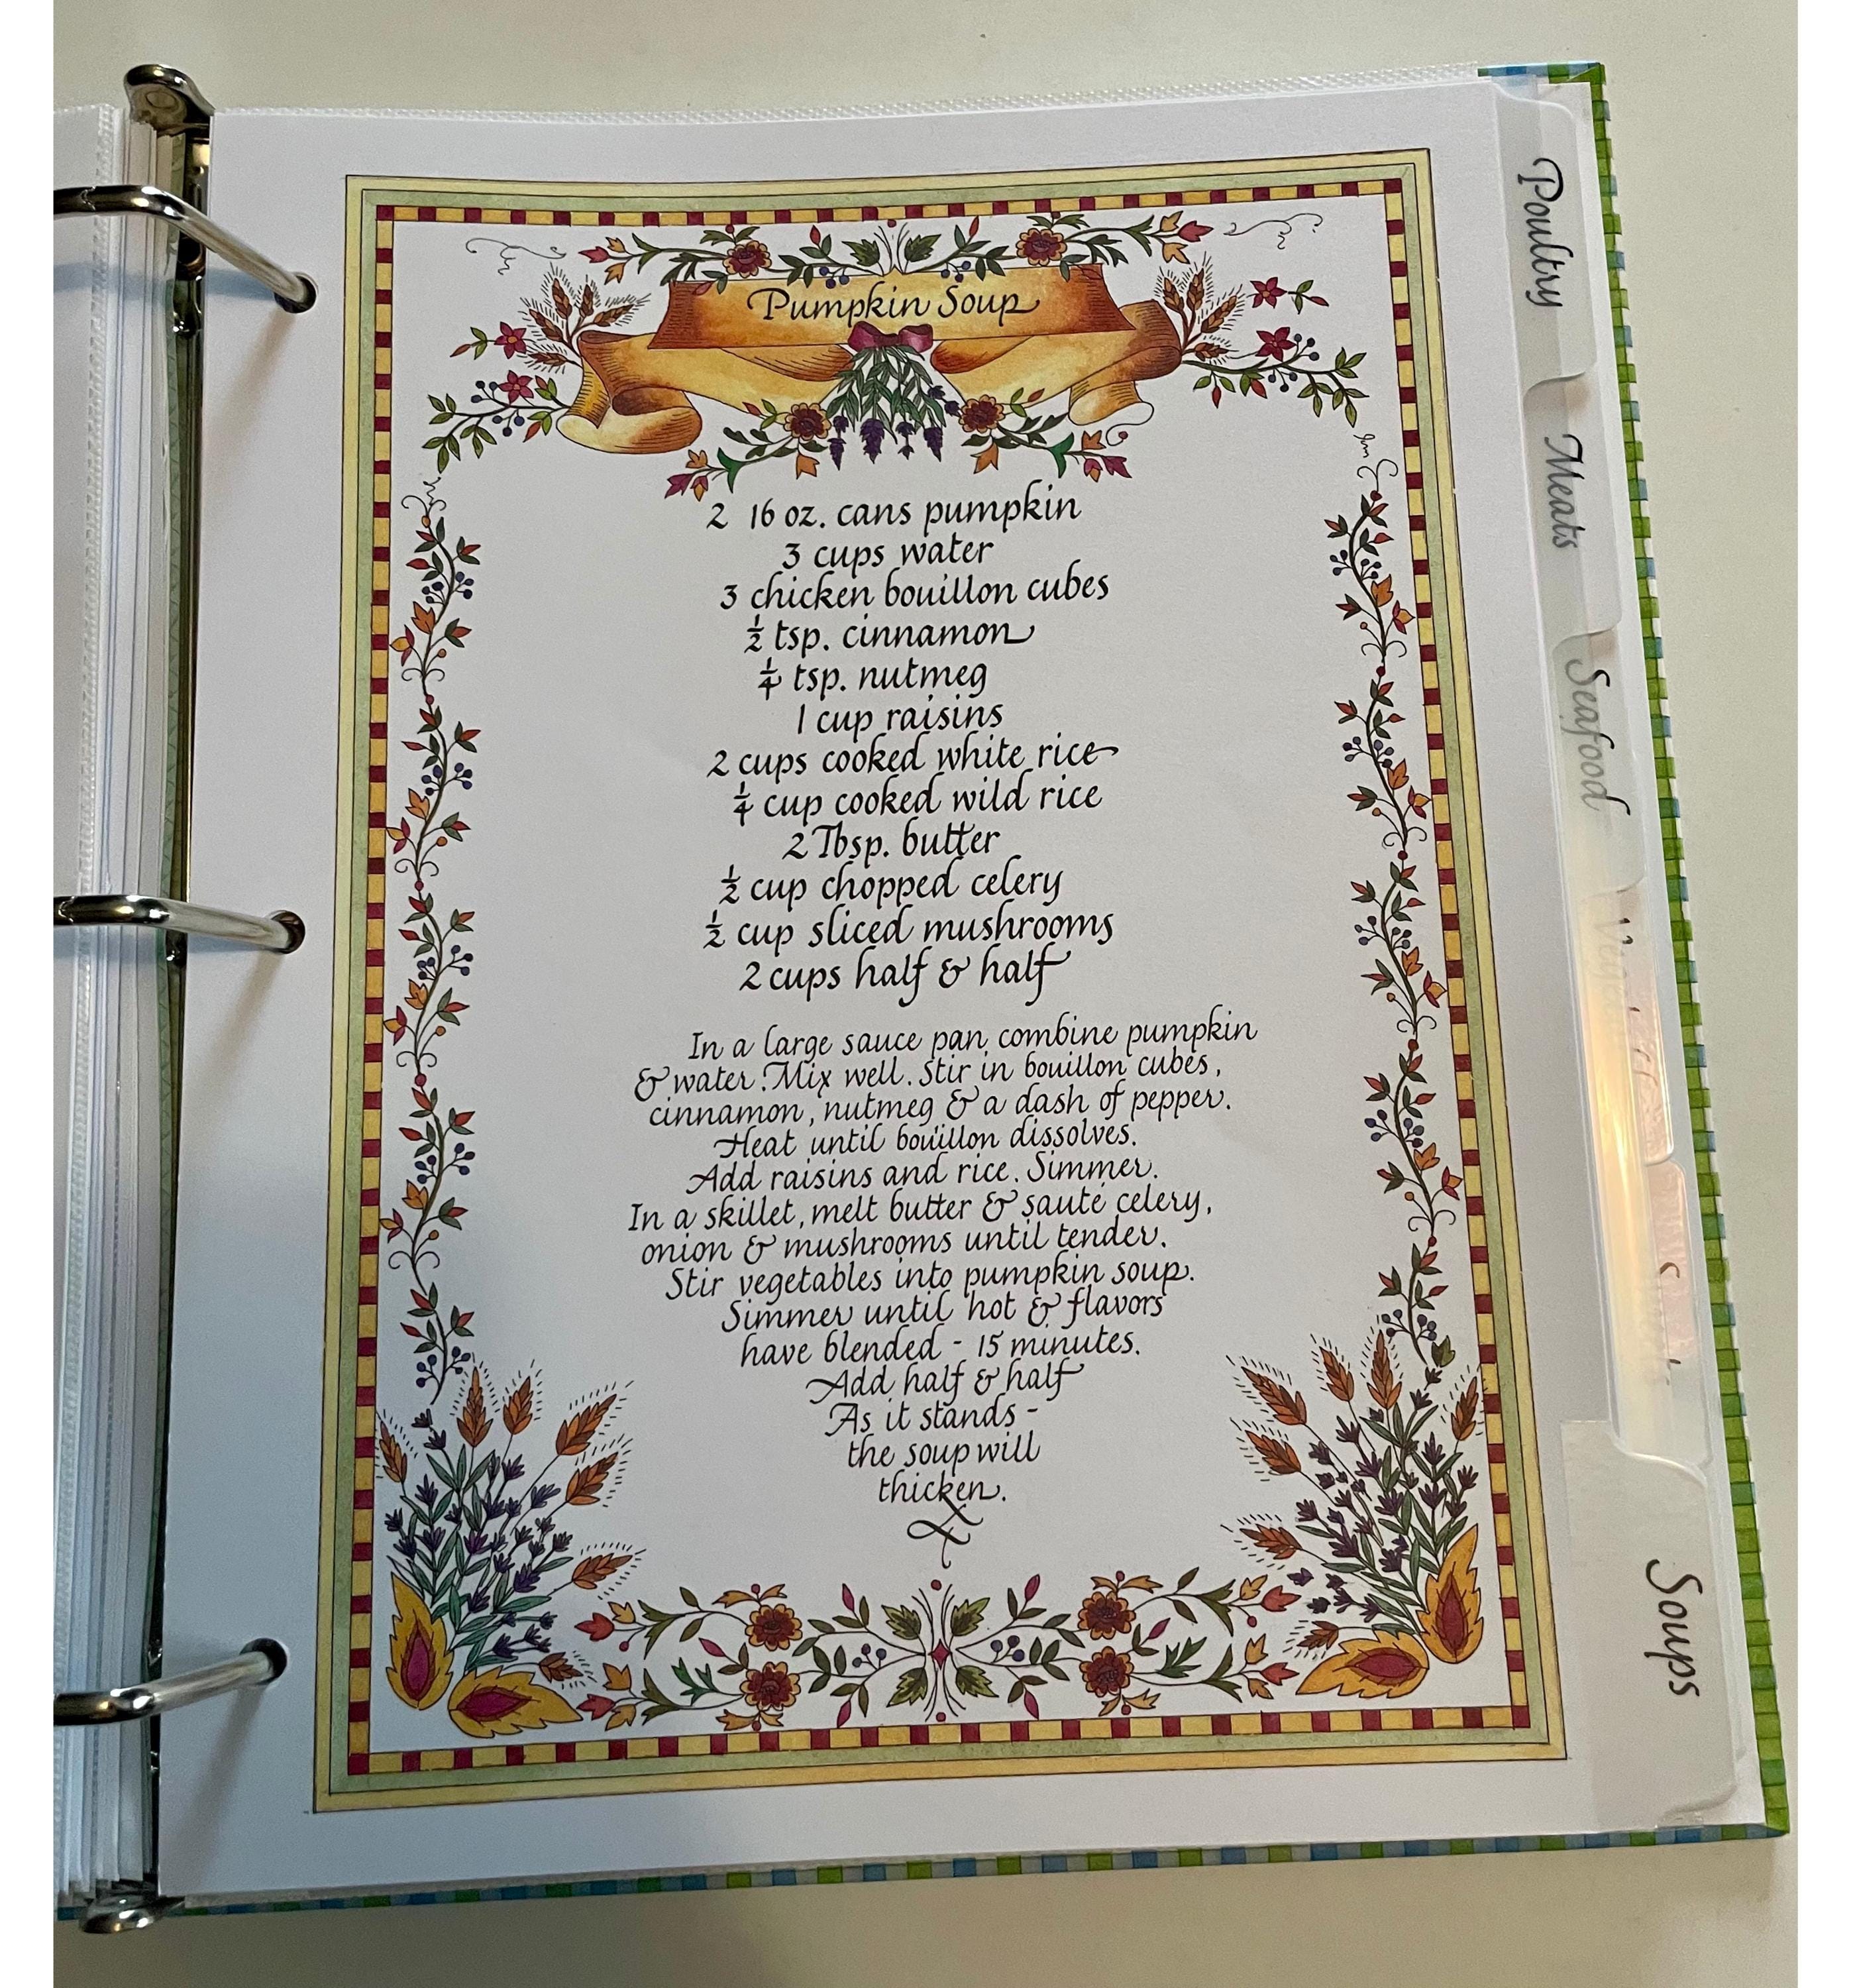 Pumpkin Soup
2 16 oz. cans pumpkin
3 cups water
3 chicken bouillon cubes
½ tsp. cinnamon
¼ tsp. nutmeg
1 cup raisins
2 cups cooked white rice
¼ cup cooked wild rice
2 Tbsp. butter
½ cup chopped celery
½ cup sliced mushrooms
2 cups half & half
In a large sauce pan combine pumpkin
& water. Mix well. Stir in bouillon cubes,
cinnamon, nutmeg & a dash of pepper.
Heat until bouillon dissolves.
Add raisins and rice. Simmer.
In a skillet, melt butter & sauté celery,
onion & mushrooms until tender.
Stir vegetables into pumpkin soup.
Simmer until hot & flavors
have blended - 15 minutes.
Add half & half
As it stands -
the soup will
thicken.
Poultry
Meats
Seafood
Soups